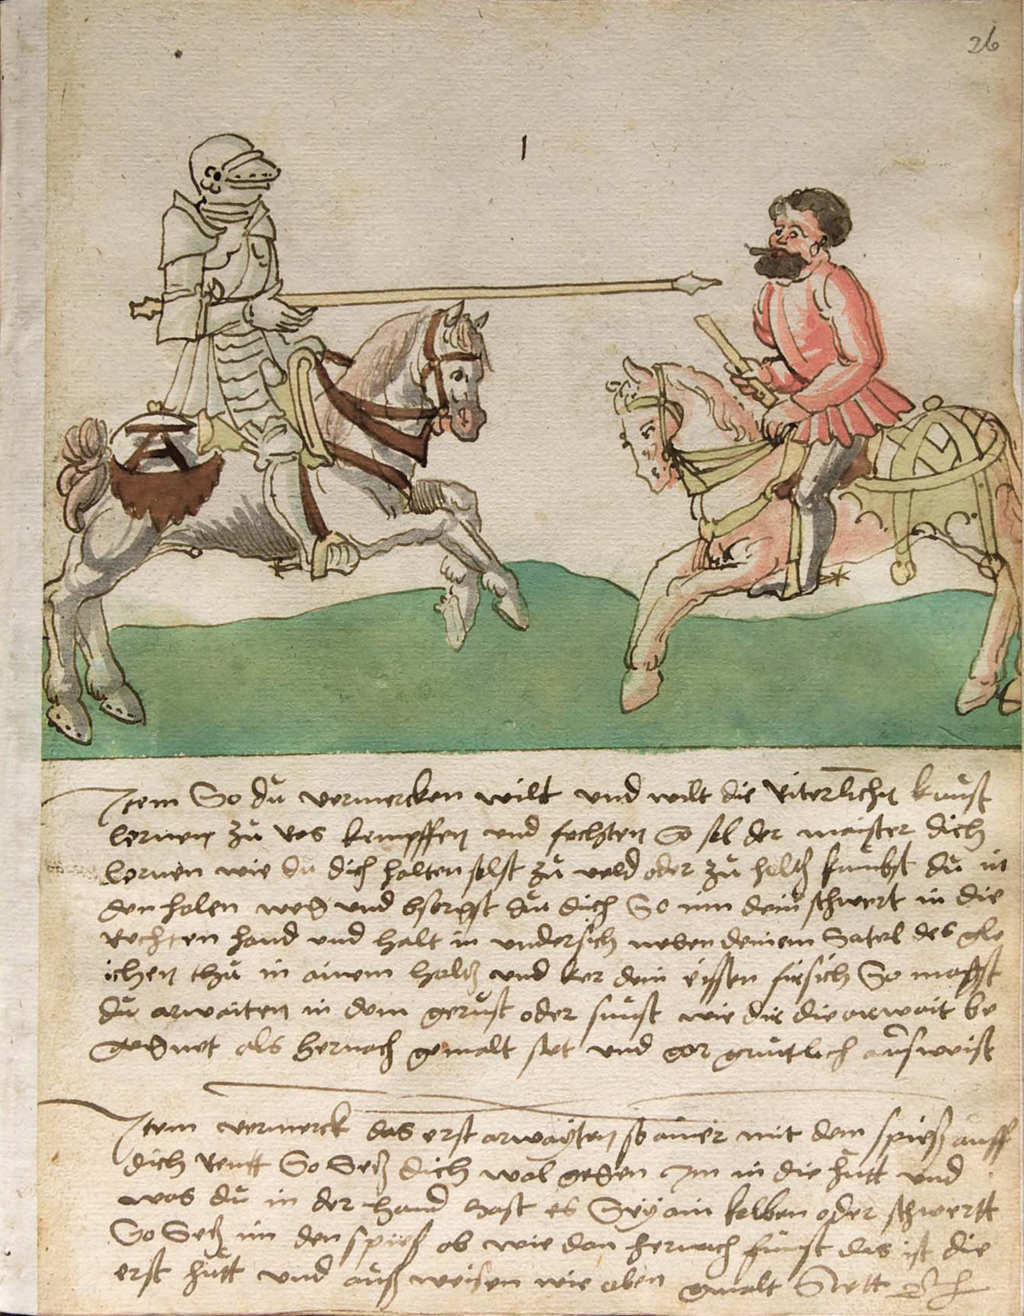 26
1
Item So du vermercken wilt und wilt die Riterlichen kunst
lernen zu Ros kempffen und fechten So sol der maister dich
lernen wie du dich halten solst zu veld oder zu holtz kumbst du in
den holen weg und besorgst du dich So nim dein schwert in die
Rechten hand und halt in undersich neben deinem Satel des gle
ichen thu in ainem holtz und ker dein fürsich So magst
du arwaiten in dem gerust oder sunst wie dir die arwait be
gegnet als hernach gemalt stet und gar gruntlich ausweist
Item vermerck das erst arwayten so ainer mit dem spieß auff
dich Rentt So Setz dich wol gegen Im in die hutt und
was du in der hand hast es Sey ain kolben oder schwertt
So Setz im den spieß ab wie dan hernach kumst das ist die
erst hutt und auß weisen wie oben gmalt Stett